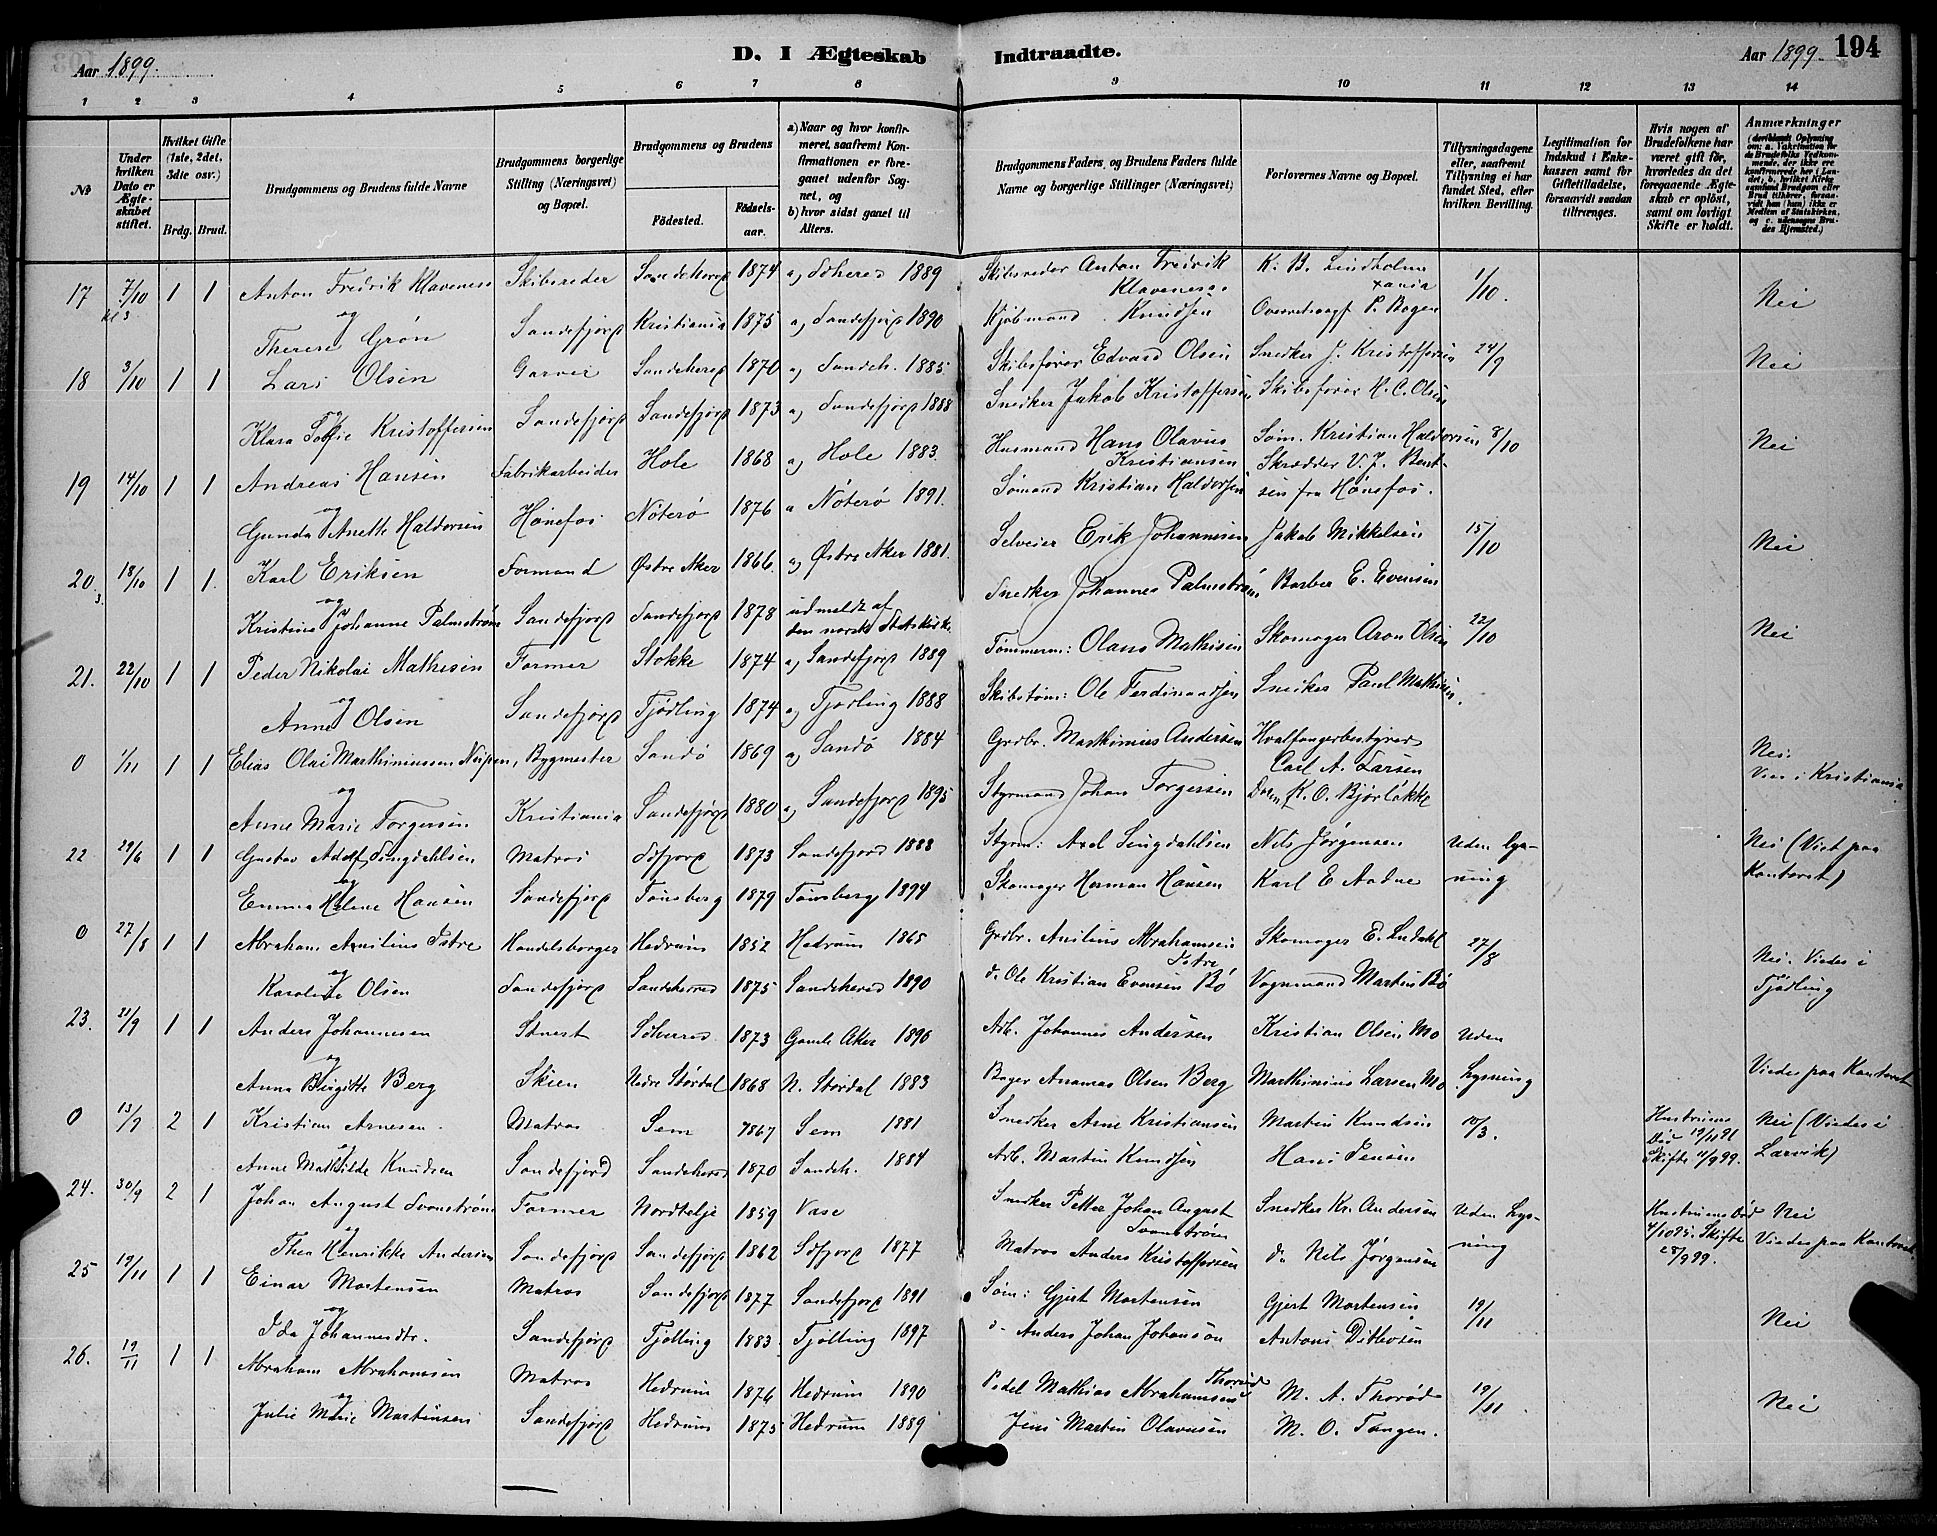 Aar 1899.
D. I Ægteskab Indtraadte.
Aar 1899. 194
1 2 3 4 5 6 7 8 9 10 11 12 13 14
№
Under hvilken Dato er Ægteskabet stiftet.
Hvilket Gifte (1ste, 2det, 3die osv.)
Brdg. Brud.
Brudgommens og Brudens fulde Navne
Brudgommens borgerlige Stilling (Næringsvei) og Bopæl.
Brudgommens og Brudens
Fødested. Fødselsaar.
a) Naar og hvor konfirmeret, saafremt Konfirmationen er foregaaet udenfor Sognet, og
b) hvor sidst gaaet til Alters.
Brudgommens Faders og Brudens Faders fulde Navne og borgerlige Stillinger (Næringsvei)
Forlovernes Navne og Bopæl.
Tillysningsdagene eller, saafremt Tillysning ei har fundet Sted, efter hvilken Bevilling.
Legitimation for Indskud i Enkekassen samt for Giftetilladelse, forsaavidt saadan tiltrænges.
Hvis nogen af Brudefolkene har været gift før, hvorledes da det foregaaende Ægteskab er opløst, samt om lovligt Skifte er holdt.
Anmærkninger
17 7/10 kl 3 1 1 Anton Fredrik Klaveness Skibsreder Sandeherep 1874 a) Sdhered 1889 Skibsreder Anton Fredrik Klaveness. K. B. Lindholm 1/10. Nei
og
Therese Grøn Sandefjorp Kristiania 1875 a) Sandefjorp 1890 Kjøbmand Knudsen Overretssagf P. Bogen xania
18 3/10 1 1 Lars Olsen Garver Sandeherep 1870 a) Sandeh. 1885 Skibsfører Edvard Olsen Snedker J. Kristoffersen 24/9 Nei
og
Klara Sofie Kristoffersen Sandefjorp Sandefjorp 1873 a) Sandefjorp 1888 Snedker Jakob Kristoffersen Skibsfører H. C. Olsen
19 14/10 1 1 Andreas Hansen Fabrikarbeider Hole 1868 a) Hole 1883. Husmand Hans Olavus Kristiansen Søm. Kristian Haldorsen 8/10 Nei
og
Gunda Anette Haldorsen Hønefos Nøterø 1876 a Nøterø 1891. Sømand Kristian Haldorsen Skrædder V. J. Bentsen fra Hønefos.
20. 18/10 1 1. Karl Eriksen Formand Østre Aker 1866. a) Østre Aker 1881. Selveier Erik Johannesen Jakob Mikkelsen 15/10 Nei
og
Kristine Johanne Palmstrøm Sandefjorp Sandefjorp 1878 udmeldt af den norske Statskirke Snedker Johannes Palmstrøm, Barber E. Evensen
21. 22/10 1 1 Peder Nikolai Mathisen Former Stokke 1874 a) Sandefjorp 1889 Tømmerm: Olaus Mathisen Skomager Aron Olsen 22/10 Nei
og
Anne Olsen Sandefjorp Tjødling 1874 a) Tjødling 1888 Skibstøm: Ole Ferdinandsen Snedker Paul Mathisen.
0 1/11 1 1 Elias Olai Marthiniussen Neipen, Bygmester Sandø 1869 a) Sandø 1884 Grdbr. Marthinius Andersen Hvalfangerbestyrer Carl A. Larsen Nei. Viet i Kristiania
og
Anne Marie Torgersen Kristiania Sandefjorp 1880 a) Sandefjorp 1895 Styrmand Johan Torgersen K. O. Bjørløkke
22 29/6 1 1 Gustav Adolf Lingdahlsen Matros Sdfjorp 1873 Sandefjord 1888 Styrm: Axel Lingdahlsen Nils Jørgensen Uden lysning Nei (Viet paa Kontoret)
og
Emma Helene Hansen Sandefjorp Tønsberg 1879 Tønsberg 1894 Skomager Herman Hansen Karl E Aadne
0 27/8 1 1 Abraham Anilius Istre Handelsborger Hedrum 1852 Hedrum 1865 Grdbr. Anilius Abrahamsen Istre Skomager E. Lindahl 27/8 Nei. Viedes i Tjødling
og
Karoline Olsen Sandefjorp Sandeherred 1875 Sandehered 1890 d. Ole Kristian Evensen Bø Vognmand Martin Bø
23. 21/9 1 1 Anders Johannesen Stuert Sdherred 1873 Gamle Aker 1890 Arb. Johannes Andersen Kristian Olsen Mo Uden Lysning
og
Anna Birgitte Berg Skien Nedre Størdal 1868 N. Størdal 1883 Bager Ananias Olsen Berg Marthinius Larsen Mo Viedes paa Kontoret
0 13/9 2 1 Kristian Arnesen. Matros Sem 1867 Sem 1881 Snedker Arne Kristiansen Martin Knudsen 10/3. Hustruens Død 19/11 91 Skifte 11/9 99. Nei (Viedes i Larvik)
og
Anne Mathilde Knudsen Sandefjord Sandehered 1870 Sandeh. 1884 Arb. Martin Knudsen Hans Jensen
24. 30/9 2 1 Johan August Svanstrøm Former Nordtelje 1859 Vase Snedker Petter Johan August Svanstrøm Snedker Kr. Andersen Uden Lysning Hustruens Død 4/10 95. Skifte 28/9 99. Nei Viedes paa Kontoret
og
Thea Henrikke Andersen Sandefjorp Sandefjorp 1862 Sdfjorp 1877 Matros Anders Kristoffersen d. Nils Jørgensen
25 19/11 1 1 Einar Mortensen Matros Sandefjorp 1877 Sandefjorp 1891 Søm: Gjert Mortensen Gjert Mortensen 19/11 Nei
og
Ida Johannesdtr. Sandefjorp Tjølling 1883. Tjølling 1897 d. Anders Johan Johanson Antoni Ditlevsen
26. 19/11 1 1 Abraham Abrahamsen Matros Hedrum 1876 Hedrum 1890 Pedel Mathias Abrahamsen Thorød M. A. Thorød 19/11 Nei
og
Julie Marie Martinsen Sandefjorp Hedrum 1875 Hedrum 1889 Jens Martin Olavesen M. O. Tangen.